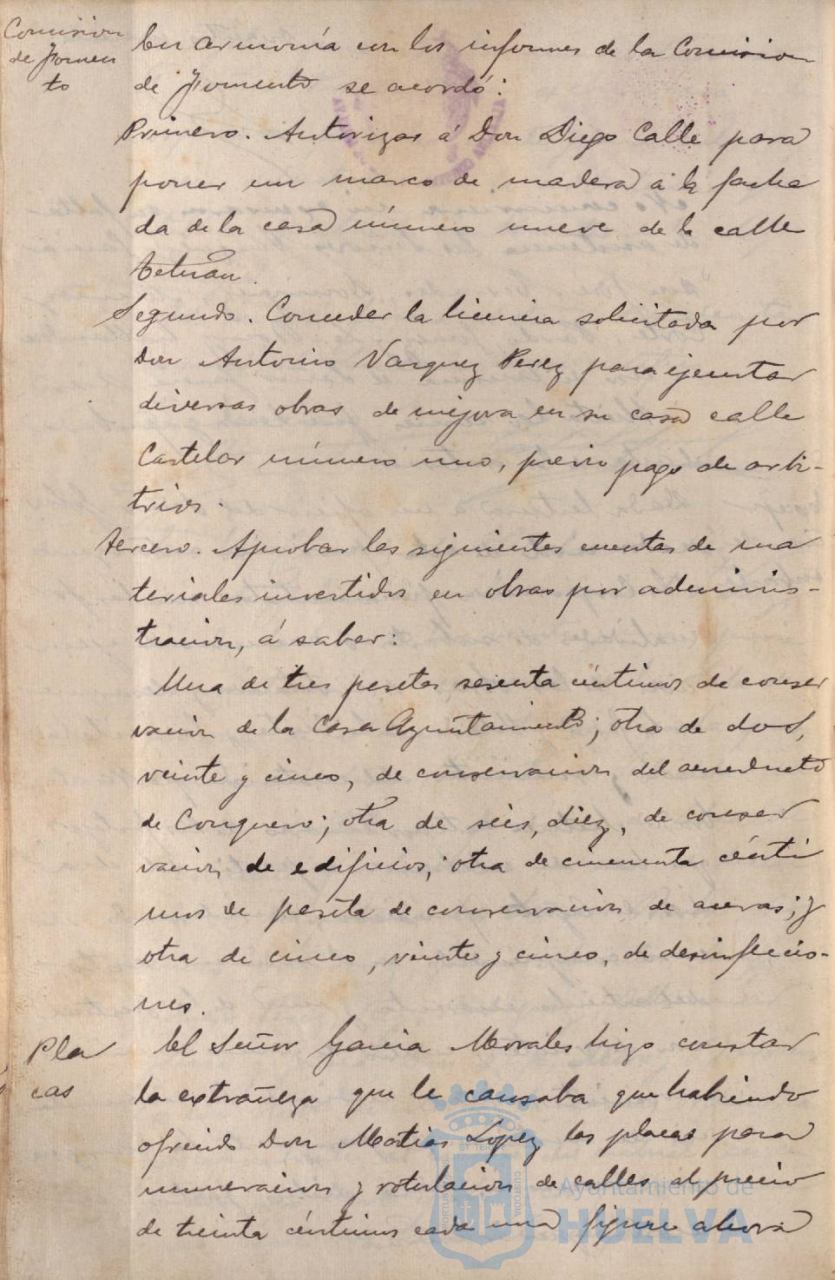 Comision
de Fomen
to
En armonía con los informes de la Comision
de Fomento se acordó:
Primero. Autorizar á Don Diego Calle para
poner un marco de madera á la facha
da de la casa número nueve de la calle
Tetuán.
Segundo. Conceder la licencia solicitada por
Don Antonio Vazquez Perez para ejecutar
diversas obras de mejora en su casa calle
Castelar número uno, previo pago de arbi-
trios.
Tercero. Aprobar las siguientes cuentas de ma
teriales invertidos en obras por adminis-
tracion, á saber:
Una de tres pesetas sesenta céntimos de conser
vacion de la Casa Ayuntamiento; otra de dos,
veinte y cinco, de conservacion del acueducto
de Conquero; otra de seis, diez, de conser
vacion de edificios; otra de cincuenta cénti
mos de peseta de conservacion de aceras; y
otra de cinco, veinte y cinco, de desinfeccio-
nes.
Pla
cas
El Señor Garcia Morales hizo constar
la extrañeza que le causaba que habiendo
ofrecido Don Matias Lopez las placas para
numeracion y rotulacion de calles al precio
de treinta céntimos cada una figure ahora
Ayuntamiento de
HUELVA